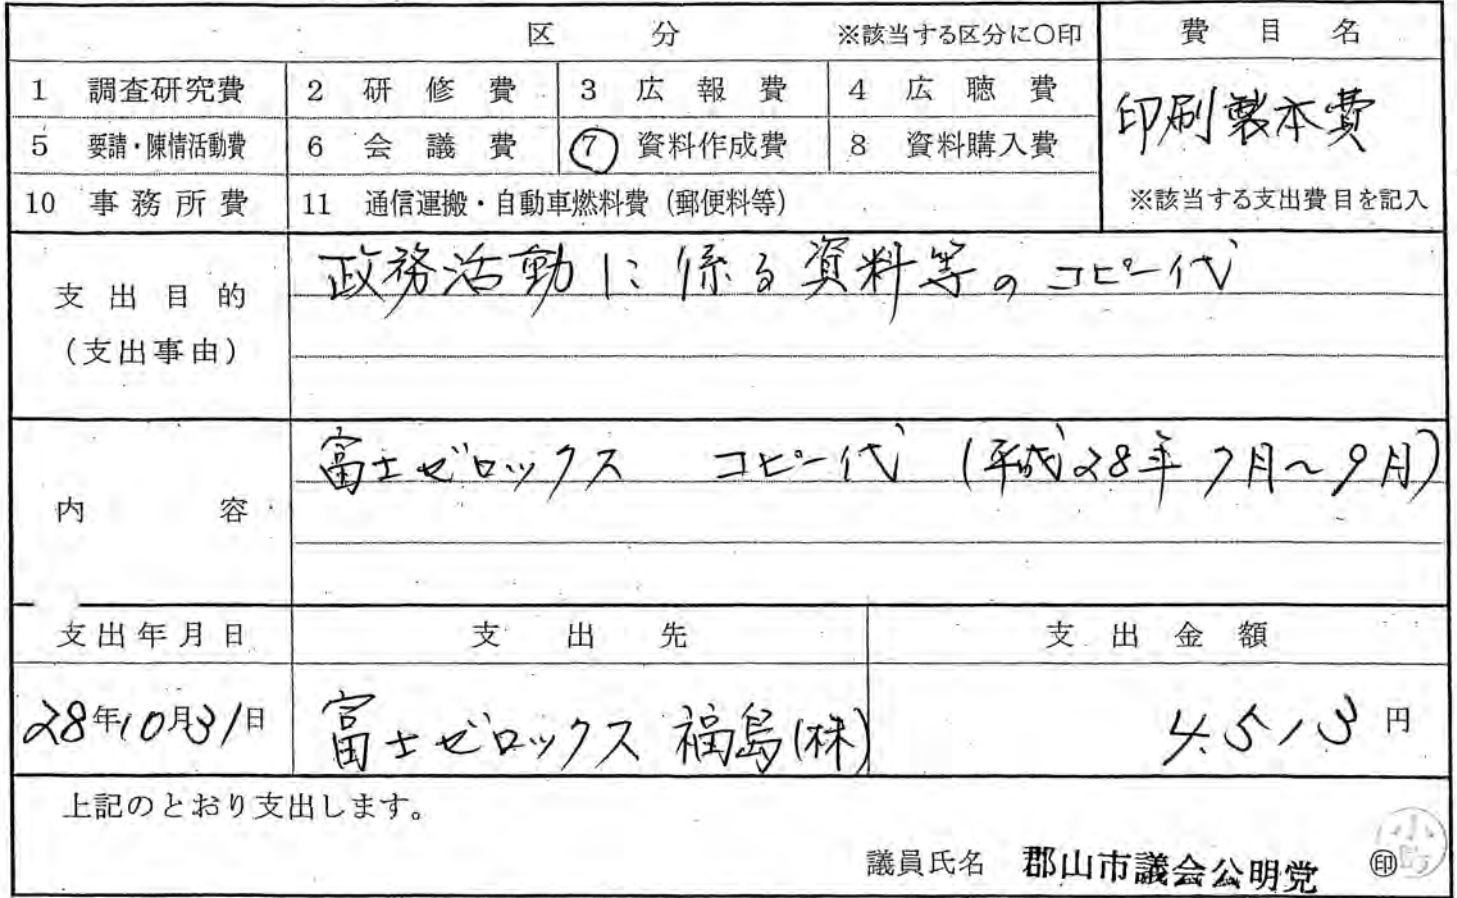 区 分 ※該当する区分に○印 費目名
1 調査研究費 2 研修費 3 広報費 4 広聴費
印刷製本費
5 要請・陳情活動費 6 会議費 ⑦ 資料作成費 8 資料購入費
10 事務所費 11 通信運搬・自動車燃料費(郵便料等) ※該当する支出費目を記入
支出目的
(支出事由)
政務活動に係る資料等のコピー代
内容
富士ゼロックス コピー代 (平成28年7月~9月)
支出年月日 支出先 支出金額
28年10月31日 富士ゼロックス福島(株) 4,513円
上記のとおり支出します。
議員氏名 郡山市議会公明党 ㊞